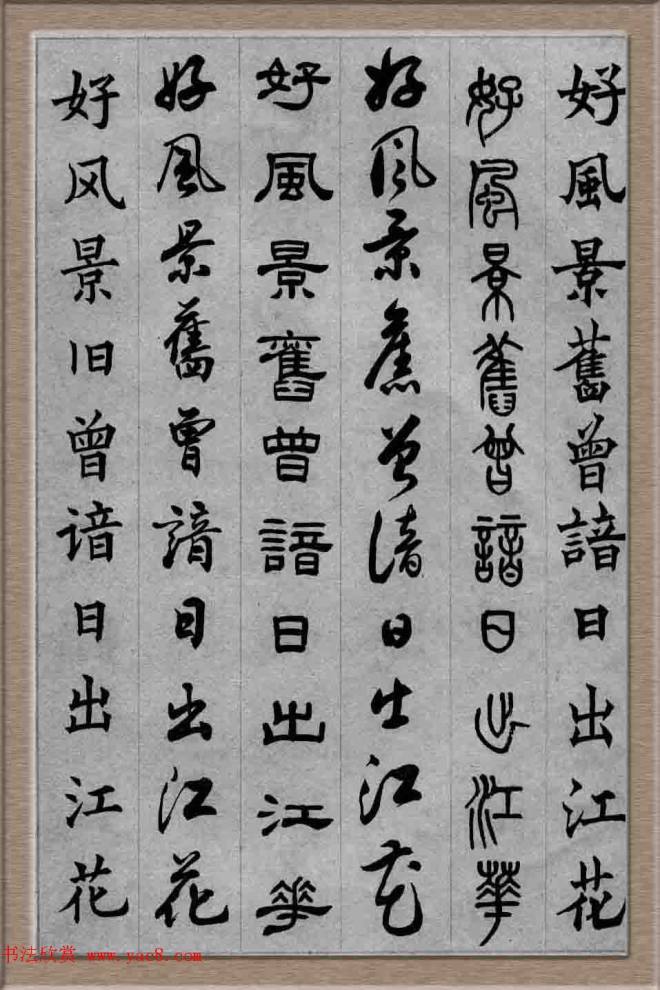 好風景舊曾諳日出江花
好風景舊曾諳日出江華
好風景舊曾諳日出江花
好風景舊曾諳日出江華
好風景舊曾諳日出江花
好风景旧曾谙日出江花
书法欣赏 www.yac8.com